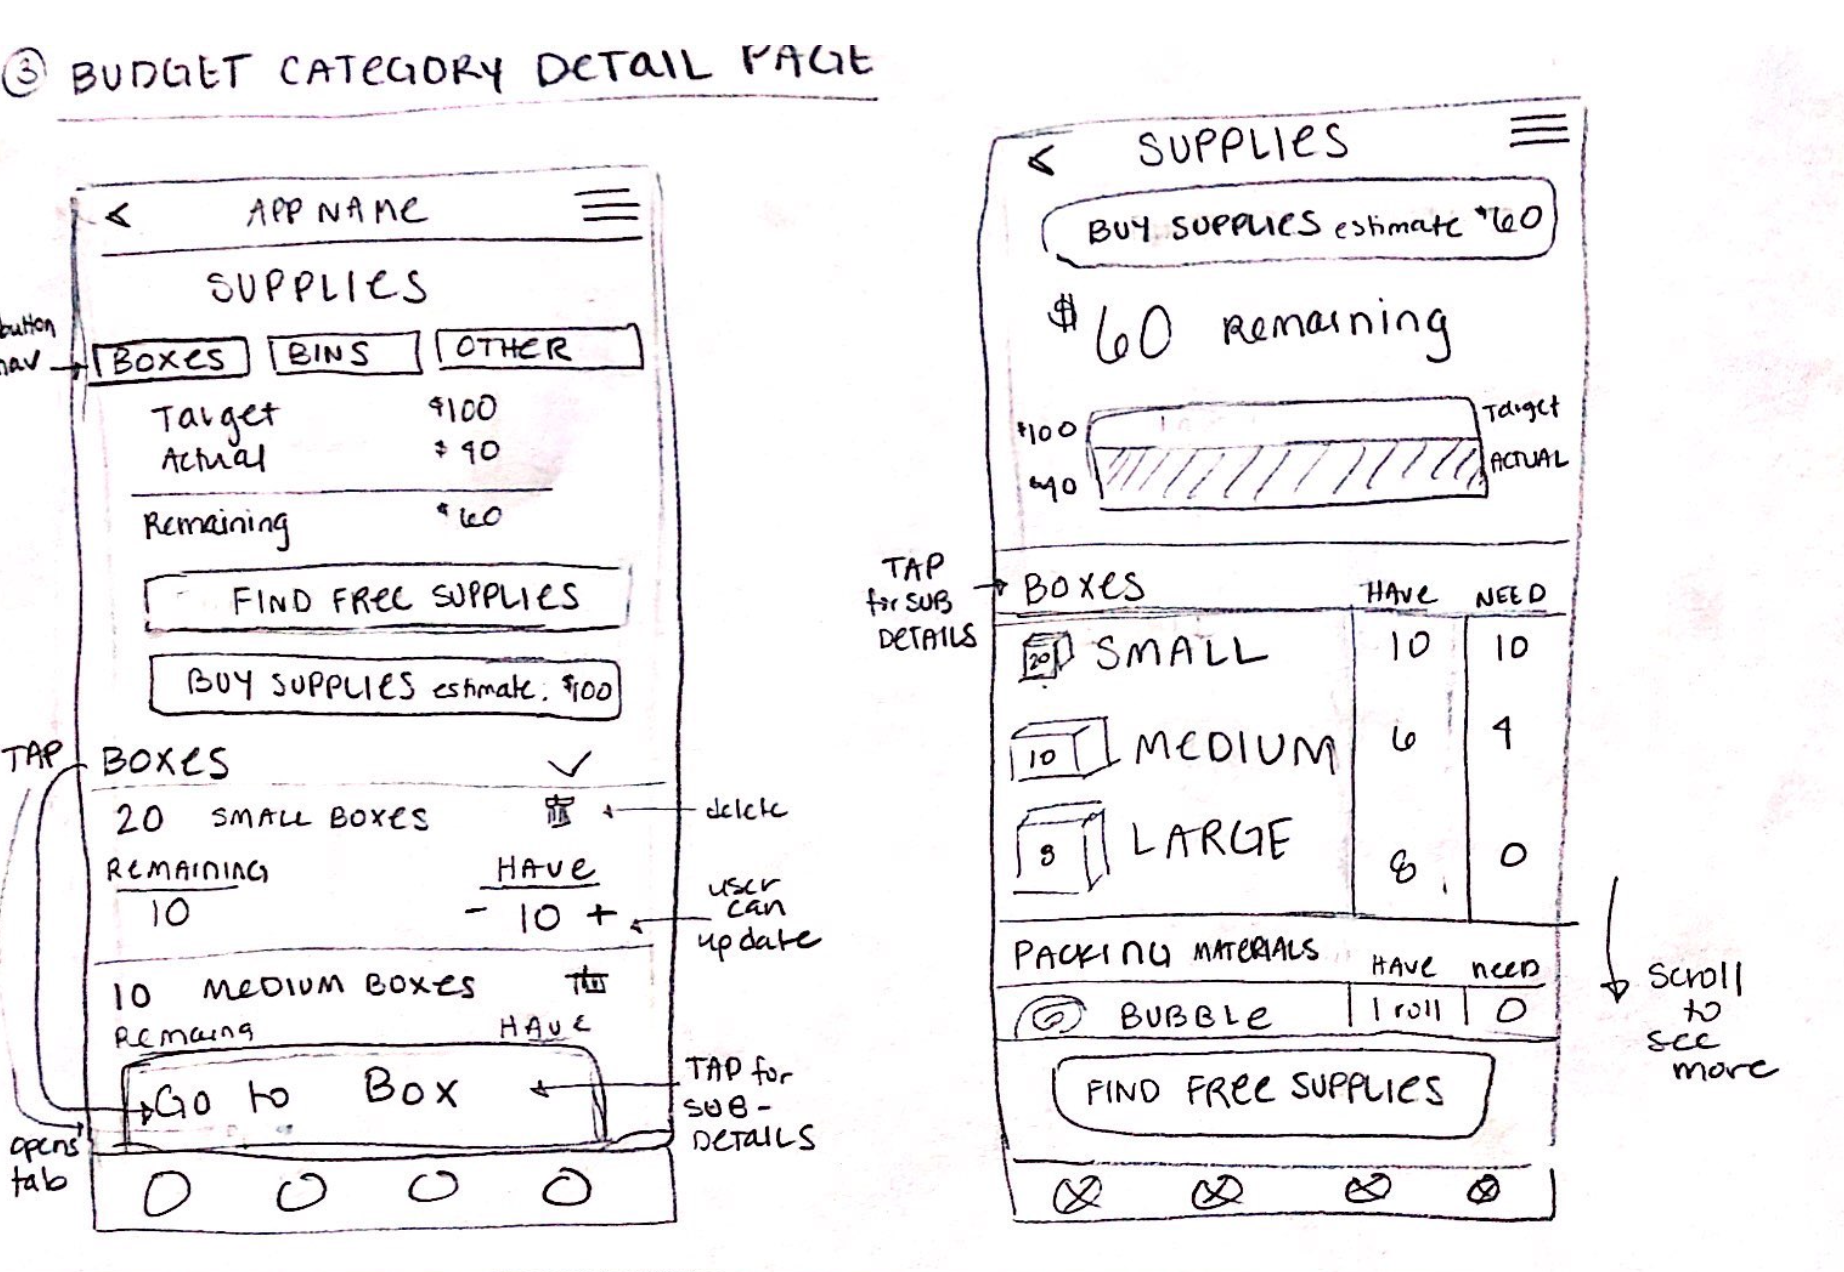 ③ BUDGET CATEGORY DETAIL PAGE
< APP NAME
SUPPLIES
button
nav
BOXES BINS OTHER
Target $100
Actual $40
Remaining $60
FIND FREE SUPPLIES
BUY SUPPLIES estimate: $100
TAP
BOXES
20 SMALL BOXES
delete
REMAINING HAVE
10 - 10 +
user
can
update
10 MEDIUM BOXES
REMAING HAVE
Go to Box
TAP for
SUB-
DETAILS
opens
tab
< SUPPLIES
BUY SUPPLIES estimate $60
$60 Remaining
$100 Target
$40 ACTUAL
TAP
for SUB
DETAILS
BOXES HAVE NEED
20 SMALL 10 10
10 MEDIUM 6 4
8 LARGE 8 0
PACKING MATERIALS HAVE NEED
BUBBLE 1 roll 0
FIND FREE SUPPLIES
Scroll
to
see
more